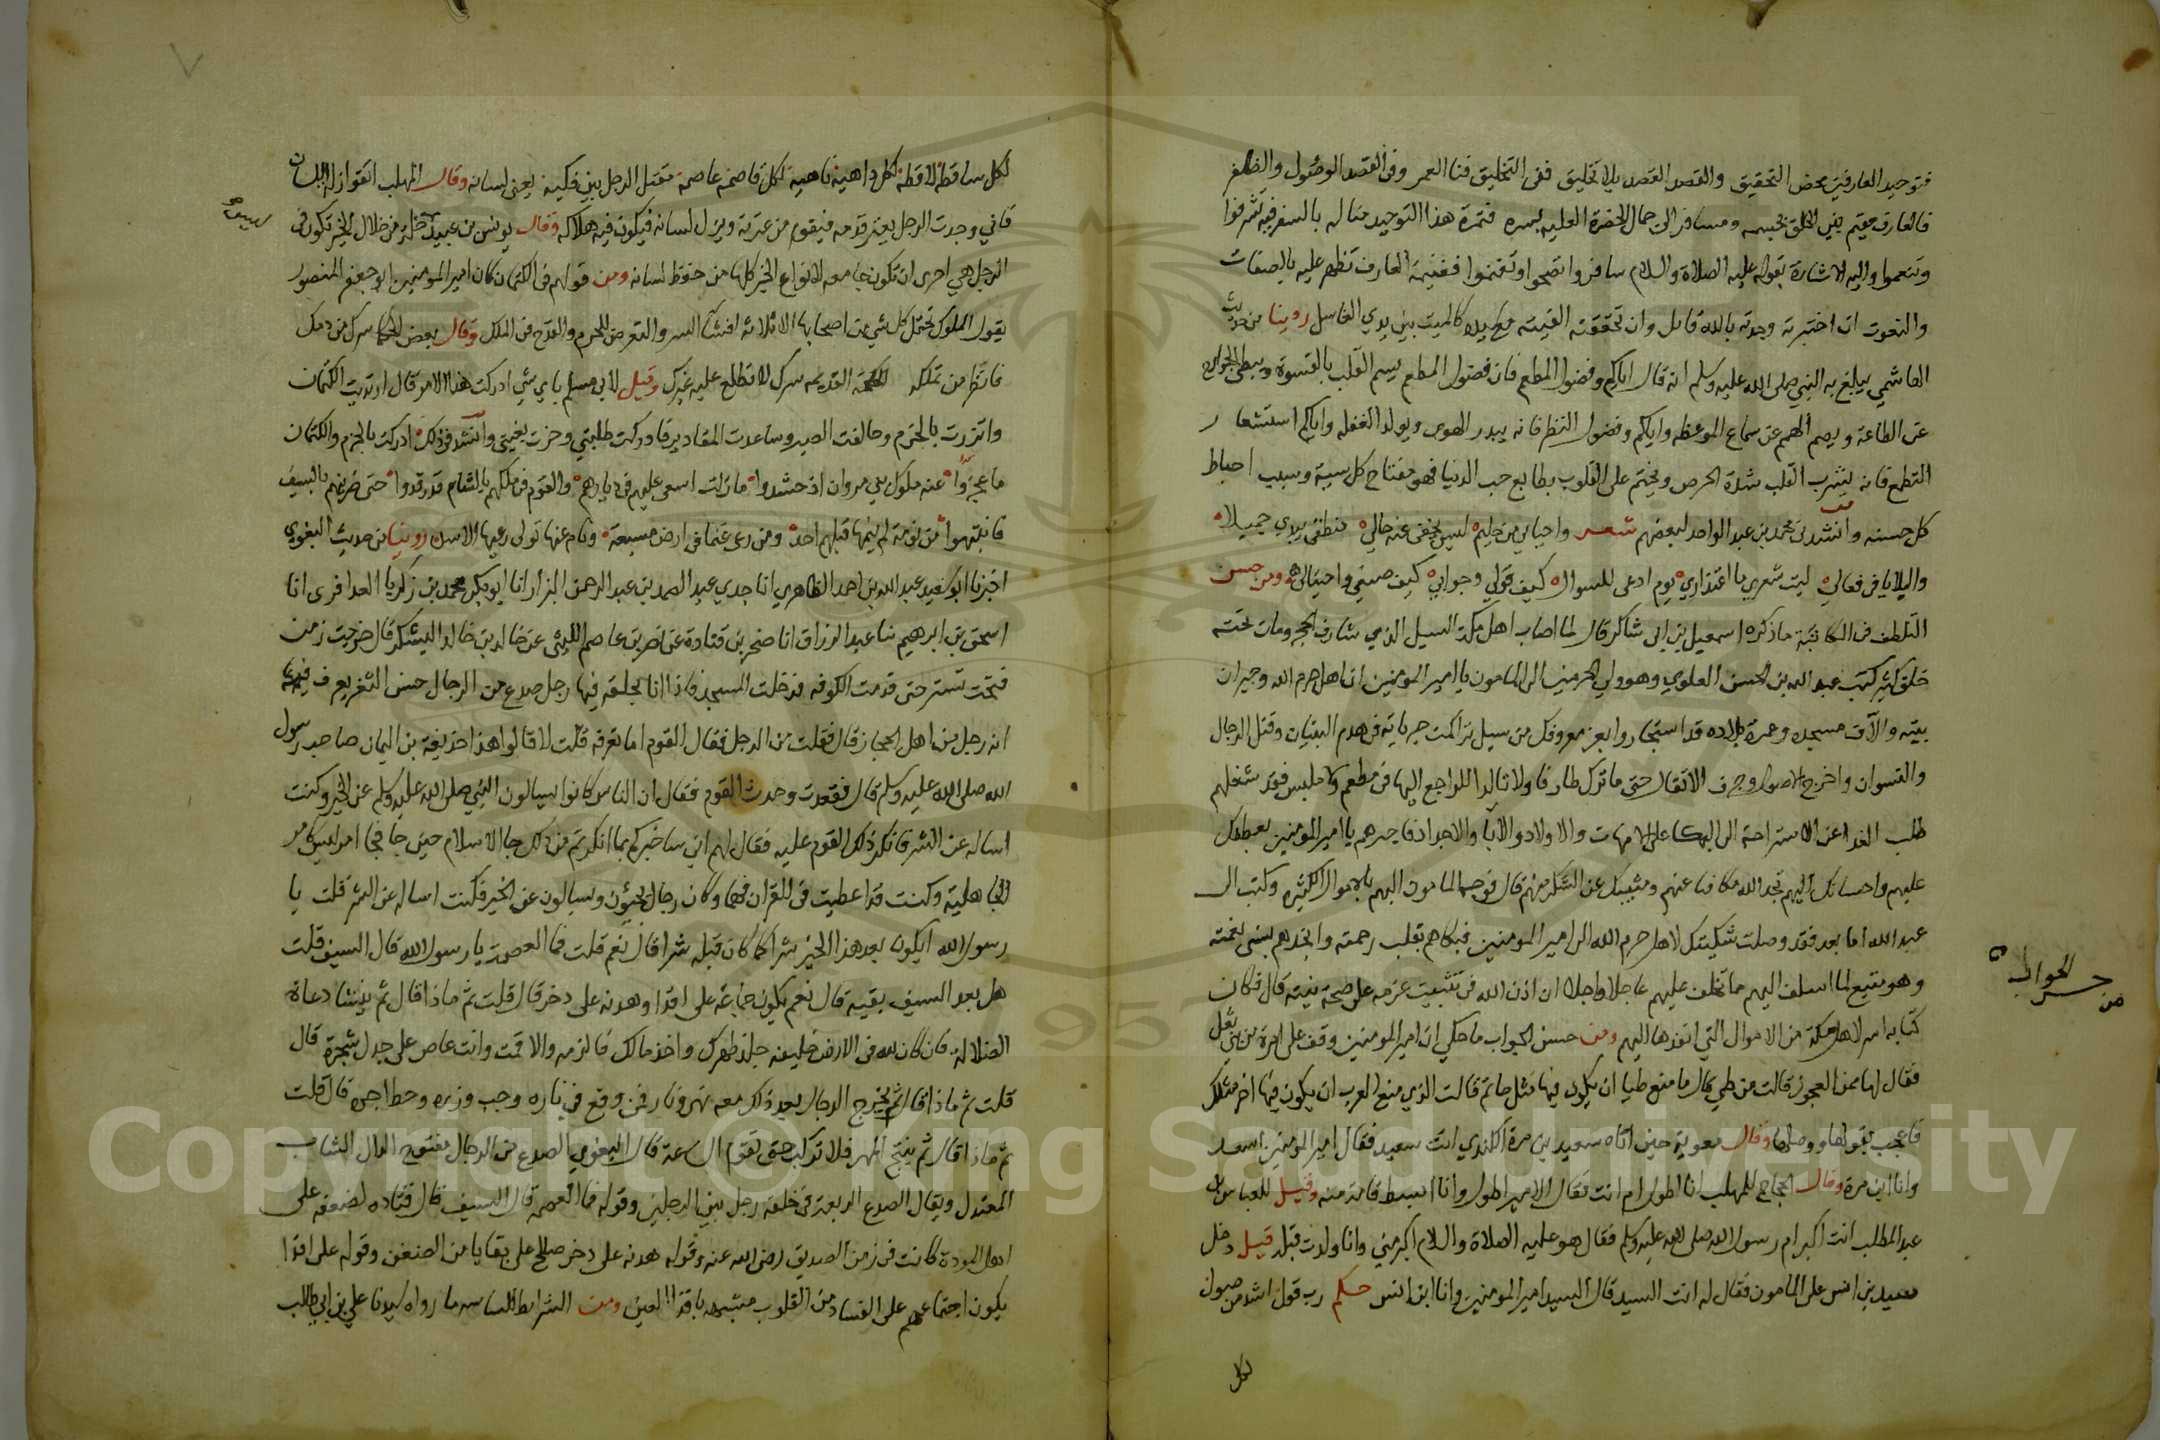 فتوحيد العارفين محض التحقيق والقصد القصد بلا تخليق ففي التخليق فنا العمر وفي القصد الوصول والظفر
فالعارف مقيم بين الخلق بجسمه ومسافر الى جمال الحضرة العليه بسره فثمرة هذا التوحيد مناله بالسفر فيه شرفوا
وتنعموا واليه الاشارة بقوله عليه الصلاة والسلام سافروا تصحوا وتغنموا فغنيمة العارف تظهر عليه بالصفات
والنعوت ان اختبرته وجدته بالله قائل وان تحققته الفيته مع كالميت بين يدي الغاسل روينا من حديث
الهاشمي يبلغ به النبي صلى الله عليه وسلم انه قال اياكم وفضول المطعم فان فضول المطعم يسم القلب بالقسوة ويبطي الجوارح
عن الطاعة ويصم الهمم عن سماع الموعظه واياكم وفضول النظر فانه يبدر الهوى ويولد الغفله واياكم استشعار
الطمع فانه يشرب القلب شدة الحرص ويختم على القلوب بطابع حب الدنيا فهو مفتاح كل سيية وسبب احباط
كل حسنه وانشدنى محمد بن عبد الواحد لبعضهم شعر واحيائي من حليم ليس يخفى عنه حالي منطقي يبدي جميلا
والبلايا في فعالي ليت شعري ما اعتذاري يوم ادعى للسوال كيف قولي وجوابي كيف صنعي واحتيالى ومن حسن
التلطف في المكاتبة ما ذكره اسمعيل بن ابي شاكر قال لما اصاب اهل مكة السيل الذي شارف الحجر ومات تحته
خلق كثير كتب عبد الله بن الحسن العلوي وهو والي الحرمين الى المامون يا امير المومنين ان اهل حرم الله وجيران
بيته والاف مسجده وعمرة بلاده قد استجاروا بعز معروفك من سيل تراكمت جرياته في هدم البنيان وقتل الرجال
والنسوان واجتاح الاصول وجرف الاثقال حتى ما ترك طارفا ولا تالدا للراجع اليها في مطعم ولا ملبس فقد شغلهم
طلب الغدا عن الاستراحة الى البكا على الامهات والاولاد والابا والاجداد فاجرهم يا امير المومنين بعطفك
عليهم واحسانك اليهم تجد الله مكافيا عنهم ومثيبك عن الشكر منهم قال فوجه المامون اليهم بالاموال الكثيره وكتب الى
عبد الله اما بعد فقد وصلت شكيتك لاهل حرم الله الى امير المومنين فبكاهم بقلب رحمته وانجدهم بسيب نعمته
وهو متبع لما اسلف اليهم بما يخلف عليهم عاجلا واجلا ان اذن الله في تثبيت عزمه على صحة نيته قال فكان
كتابه اسر لاهل مكة من الاموال التي انفذها اليهم ومن حسن الجواب ما حكي ان امير المومنين وقف على امرة من بني ثعل
فقال لها ممن العجوز قالت من طي قال ما منع طيا ان يكون فيها مثل حاتم قالت الذي منع العرب ان يكون فيها اخر مثلك
فاعجب بقولها ووصلها وقال معوية حين اتاه سعيد بن مرة الكندي انت سعيد فقال امير المومنين اسعد
وانا ابن مرة وقال الحجاج للمهلب انا اطول ام انت فقال الامير اطول وانا ابسط قامة منه وقيل للعباس بن
عبد المطلب انت اكبر ام رسول الله صلى الله عليه وسلم فقال هو عليه الصلاة والسلام اكبر مني وانا ولدت قبله قيل دخل
سعيد بن انس على المامون فقال له انت السيد قال السيد امير المومنين وانا ابن انس حكم رب قول اشد من صول
لكل
من حسن الجواب
لكل ساقطة لاقطة لكل داهية ناهية لكل قاصمة عاصمة مقتل الرجل بين فكيه يعني لسانه وقال المهلب اتقوا زلة اللسان
فاني وجدت الرجل يعثر قدمه فيقوم من عثرته ويزل لسانه فيكون فيه هلاكه وقال يونس بن عبيد خلة من خلال الخير تكون في
الرجل هي احرى ان تكون جامعه لانواع الخير كلها من حفظ لسانه ومن قولهم في الكتمان كان امير المومنين ابو جعفر المنصور
يقول الملوك تحتمل كل شي من اصحابها الا ثلاثة افشا السر والتعرض للحرم والقدح في الملك وقال بعض الحكما سرك من دمك
فانظر من تملكه سرك لا تطلع عليه غيرك وقيل لابي مسلم باي شي ادركت هذا الامر قال ارتديت الكتمان
واتزرت بالحزم وحالفت الصبر وساعدت المقادير فادركت طلبتي وحزت بغيتي وانشد في ذلك ادركت بالحزم والكتمان
ما عجزوا عنه ملوك بني مروان اذ حشدوا ما زلت اسعى عليهم في ديارهم والقوم في ملكهم بالشام قد رقدوا حتى ضربتهم بالسيف
فانتبهوا من نومة لم ينمها قبلهم احد ومن رعى غنما في ارض مسبعة ونام عنها تولى رعيها الاسد روينا من حديث البغوي
اخبرنا ابو سعيد عبد الله بن احمد الطاهري انا جدي عبد الصمد بن عبد الرحمن البزار انا ابو بكر محمد بن زكريا العدافرى انا
اسحق بن ابرهيم نا عبد الرزاق انا معمر عن قتادة عن نصر بن عاصم الليثي عن خالد بن خالد اليشكر قال خرجت زمن
فتحت تستر حتى قدمت الكوفه فدخلت المسجد فاذا انا بحلقه فيها رجل صدع من الرجال حسن الثغر يعرف فيه
انه رجل من اهل الحجاز قال فقلت من الرجل فقال القوم اما تعرفه قلت لا قالوا هذا حذيفة بن اليمان صاحب رسول
الله صلى الله عليه وسلم قال فقعدت وحدث القوم فقال ان الناس كانوا يسالون النبي صلى الله عليه وسلم عن الخير وكنت
اساله عن الشر فانكر ذلك القوم عليه فقال لهم اني ساخبركم بما انكرتم من ذلك جا الاسلام حين جا فجا امر ليس كامر
الجاهلية وكنت قد اعطيت في القران فهما وكان رجال يجيئون ويسالون عن الخير فكنت اساله عن الشر قلت يا
رسول الله ايكون بعد هذا الخير شر كما كان قبله شر قال نعم قلت فما العصمة يا رسول الله قال السيف قلت
هل بعد السيف بقية قال نعم يكون جماعة على اقذا وهدنه على دخن قال قلت ثم ماذا قال ثم ينشا دعاة
الضلالة فان كان لله في الارض خليفه جلد ظهرك واخذ مالك فالزمه والا فمت وانت عاض على جذل شجرة قال
قلت ثم ماذا قال ثم يخرج الدجال بعد ذلك معه نهر ونار فمن وقع في ناره وجب وزره وحط اجره قال قلت
ثم ماذا قال ثم ينتج المهر فلا تركب حتى تقوم الساعة قال البغوي الصدع من الرجال مفتوح الدال الشاب
المعتدل ويقال الصدع الربعة في خلقه رجل بين الرجلين وقوله فما العصمه قال السيف قال قتاده لضعفه على
اهل الردة كانت في زمن الصديق رضي الله عنه وقوله هدنه على دخن صلح على بقايا من الضغن وقوله على اقذا
يكون اجتماعهم على الفساد من القلوب مشبهه باقذا العين ومن الشرايط ما رواه كيدنا علي بن ابي طالب